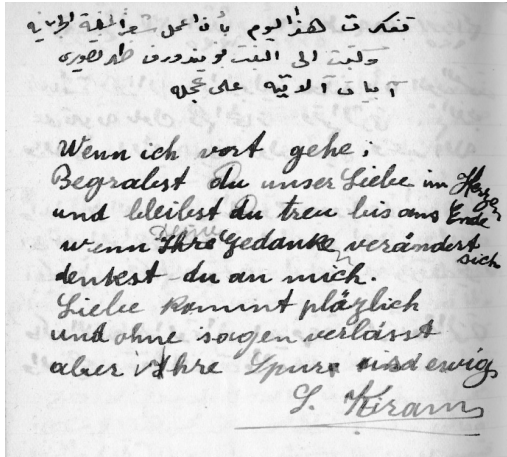 تفكرت هذا اليوم بأن اعمل شعر
وكتبت الى البنت
ابيات الاتية على عجله
Wenn ich vort gehe,
Begrabst du unser Liebe im Herzen
und bleibst du treu bis ans Ende
wenn Ihre deine Gedanken verändert sich
denkest du an mich.
Liebe kommt pläzlich
und ohne sagen verlässt
aber Ihre Spure sind ewig
S. Kiram